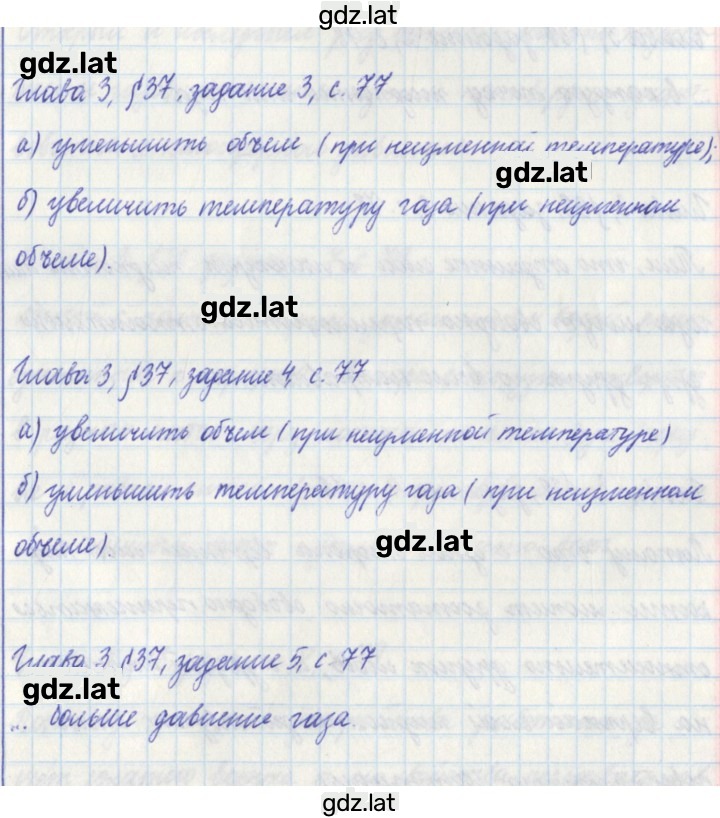 gdz.lat
gdz.lat
Глава 3, §37, задание 3, с. 77
а) уменьшить объем (при неизменной температуре);
gdz.lat
б) увеличить температуру газа (при неизменном
объеме).
gdz.lat
Глава 3, §37, задание 4, с. 77
а) увеличить объем (при неизменной температуре)
б) уменьшить температуру газа (при неизменном
объеме).
gdz.lat
Глава 3 §37, задание 5, с. 77
gdz.lat
... больше давление газа
gdz.lat